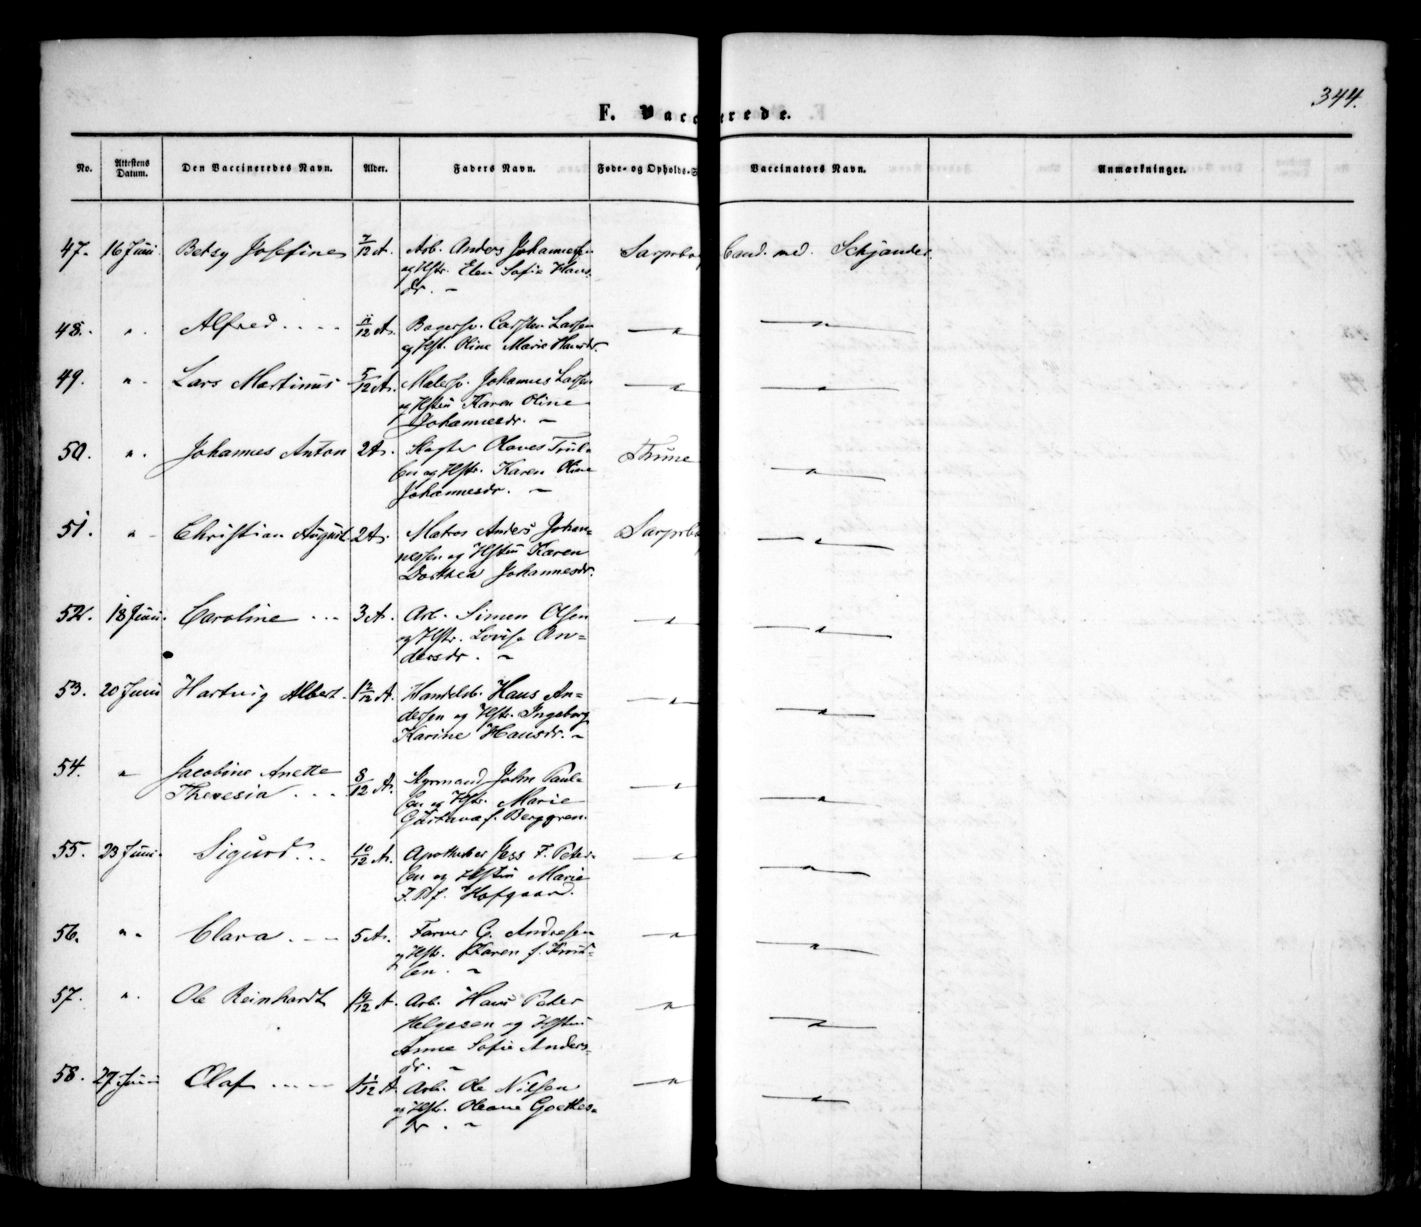 344.
F. Vaccinerede.
No. Attestens Datum. Den Vaccineredes Navn. Alder. Faders Navn. Føde- og Opholds-S Vaccinators Navn. Anmærkninger.
47. 16 Juni Betsy Josefine 7/12 A. Arb. Anders Johannesen Sarpsbog Cand. med. Schjander
og Hstr. Elen Sofie Hans-
dr. –
48. " Alfred 11/12 A. Bagersv. Carsten Larsen — " — — " —
og Hst. Oline Marie Hansdr.
49. " Lars Martinus 5/12 A. Malersv. Johannes Larsen — " — — " —
og Hstru Karen Oline
Johannesdr. –
50. " Johannes Anton 2 A. Slagter Olaves Trul- Thune — " —
sen og Hstr. Karen Oline
Johannesdr. –
51. " Christian August 2 A. Matros Anders Johan- Sarpsbo — " —
nessen og Hstru Karen
Dorthea Johannesdr.
52. 18 Juni Caroline 3 A. Arb. Simen Olsen — " — — " —
og Hstr. Lovise An-
dersdr. –
53. 20 Juni Hartvig Albert 1 2/12 A. Handelsb. Hans An- — " — — " —
dersen og Hstr. Ingeborg
Karine Hansdr. –
54. " Jacobine Anette
Theresia 8/12 A. Styrmand John Paul- — " — — " —
sen og Hstr. Marie
Gustava f. Berggren
55. 23 Juni Sigurd 10/12 A. Apotheker Jess F. Peter- — " — — " —
sen og Hstru Marie
f. Hofgaard.
56. " Clara 5 A. Farver G. Andresen — " — — " —
og Hstr. Karen f. Knud-
sen. –
57. " Ole Reinhardt 10/12 A. Arb. Hans Peder — " — — " —
Helgesen og Hstru
Anne Sofie Anders-
dr. –
58. 27 Juni Olaf 1 1/12 A Arb. Ole Nilsen — " — — " —
og Hstr. Oleane
dr. –